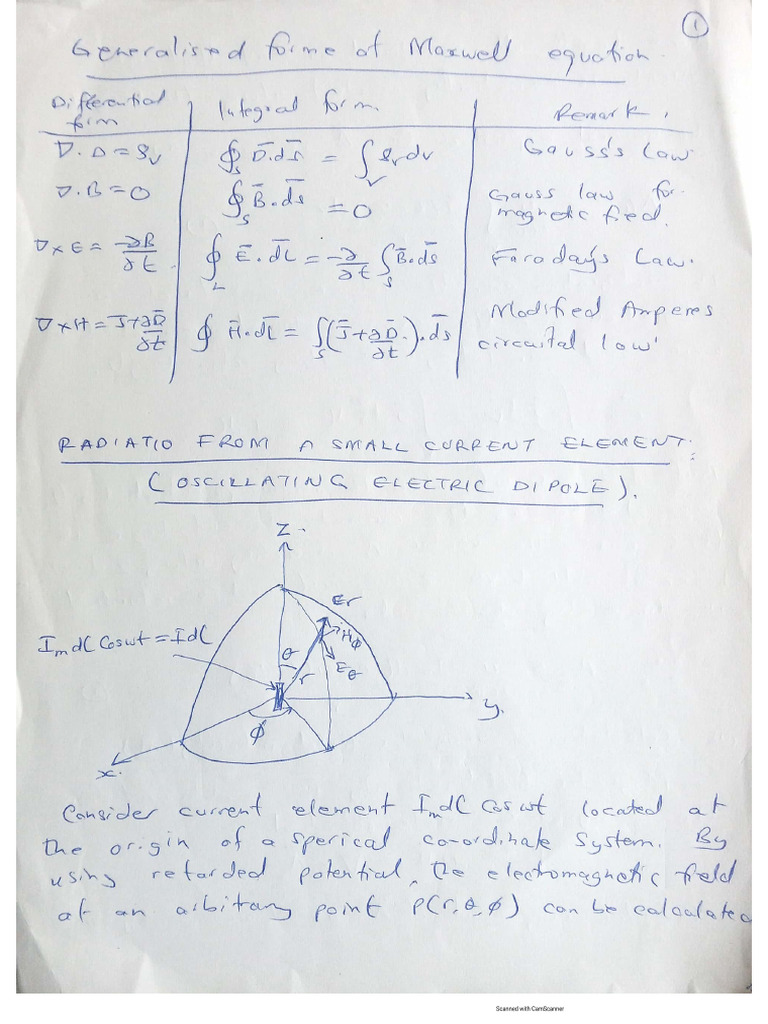 1
Generalised forme of Maxwell equation.
Differential form | Integral form. | Remark.
∇.D = ρv | ∮s D̄.ds̄ = ∫v ρv dv | Gauss's Law
∇.B = 0 | ∮s B̄.ds̄ = 0 | Gauss law for magnetic field.
∇×E = -∂B/∂t | ∮L Ē.dL̄ = -∂/∂t ∫s B̄.ds̄ | Faraday's Law.
∇×H = J̄+∂D̄/∂t | ∮ H̄.dL̄ = ∫s (J̄+∂D̄/∂t).ds̄ | Modified Amperes circuital law
RADIATIO FROM A SMALL CURRENT ELEMENT:
(OSCILLATING ELECTRIC DIPOLE).
Z
Er
Hϕ
Im dL Cos wt = IdL
θ
r
Eθ
y.
ϕ
x.
Consider current element Im dL Cos wt located at
the origin of a sperical co-ordinate system. By
using retarded potential, the electromagnetic field
at an arbitrary point P(r, θ, ϕ) can be calculated
Scanned with CamScanner